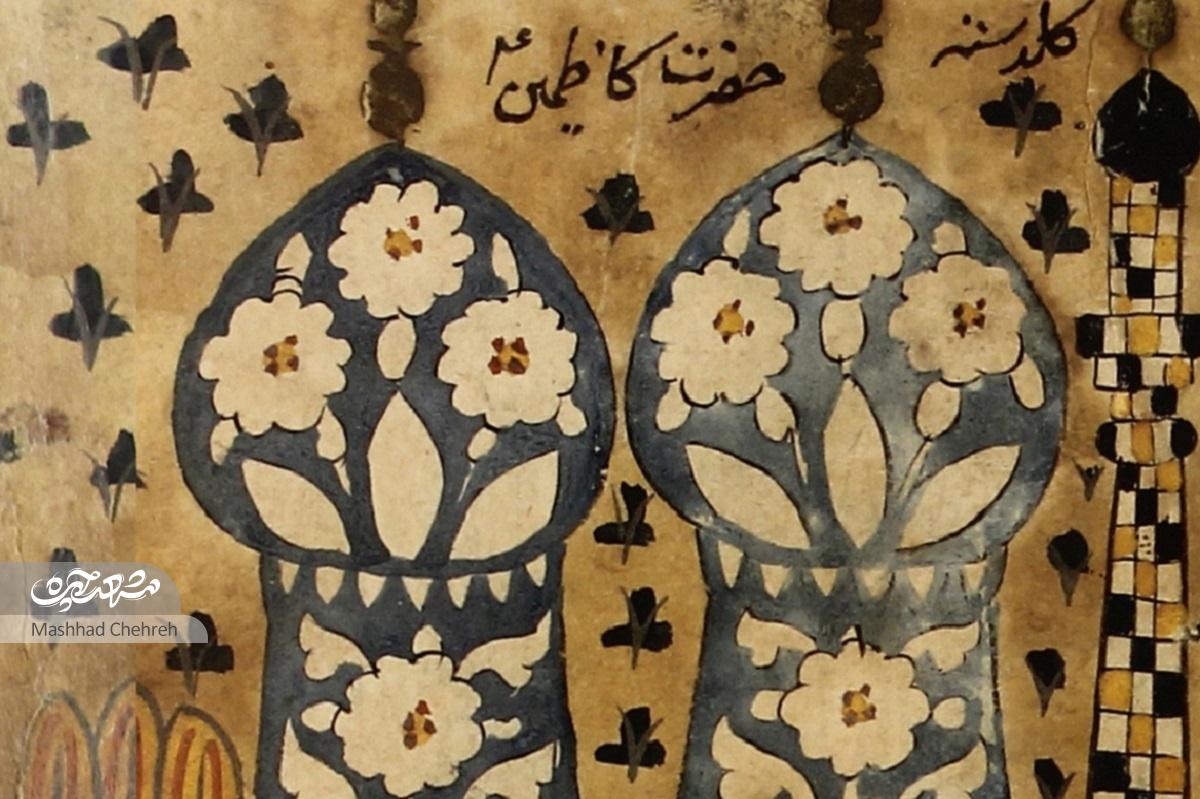 گلدسته
حضرت کاظمین ع
مشهد چهره
Mashhad Chehreh